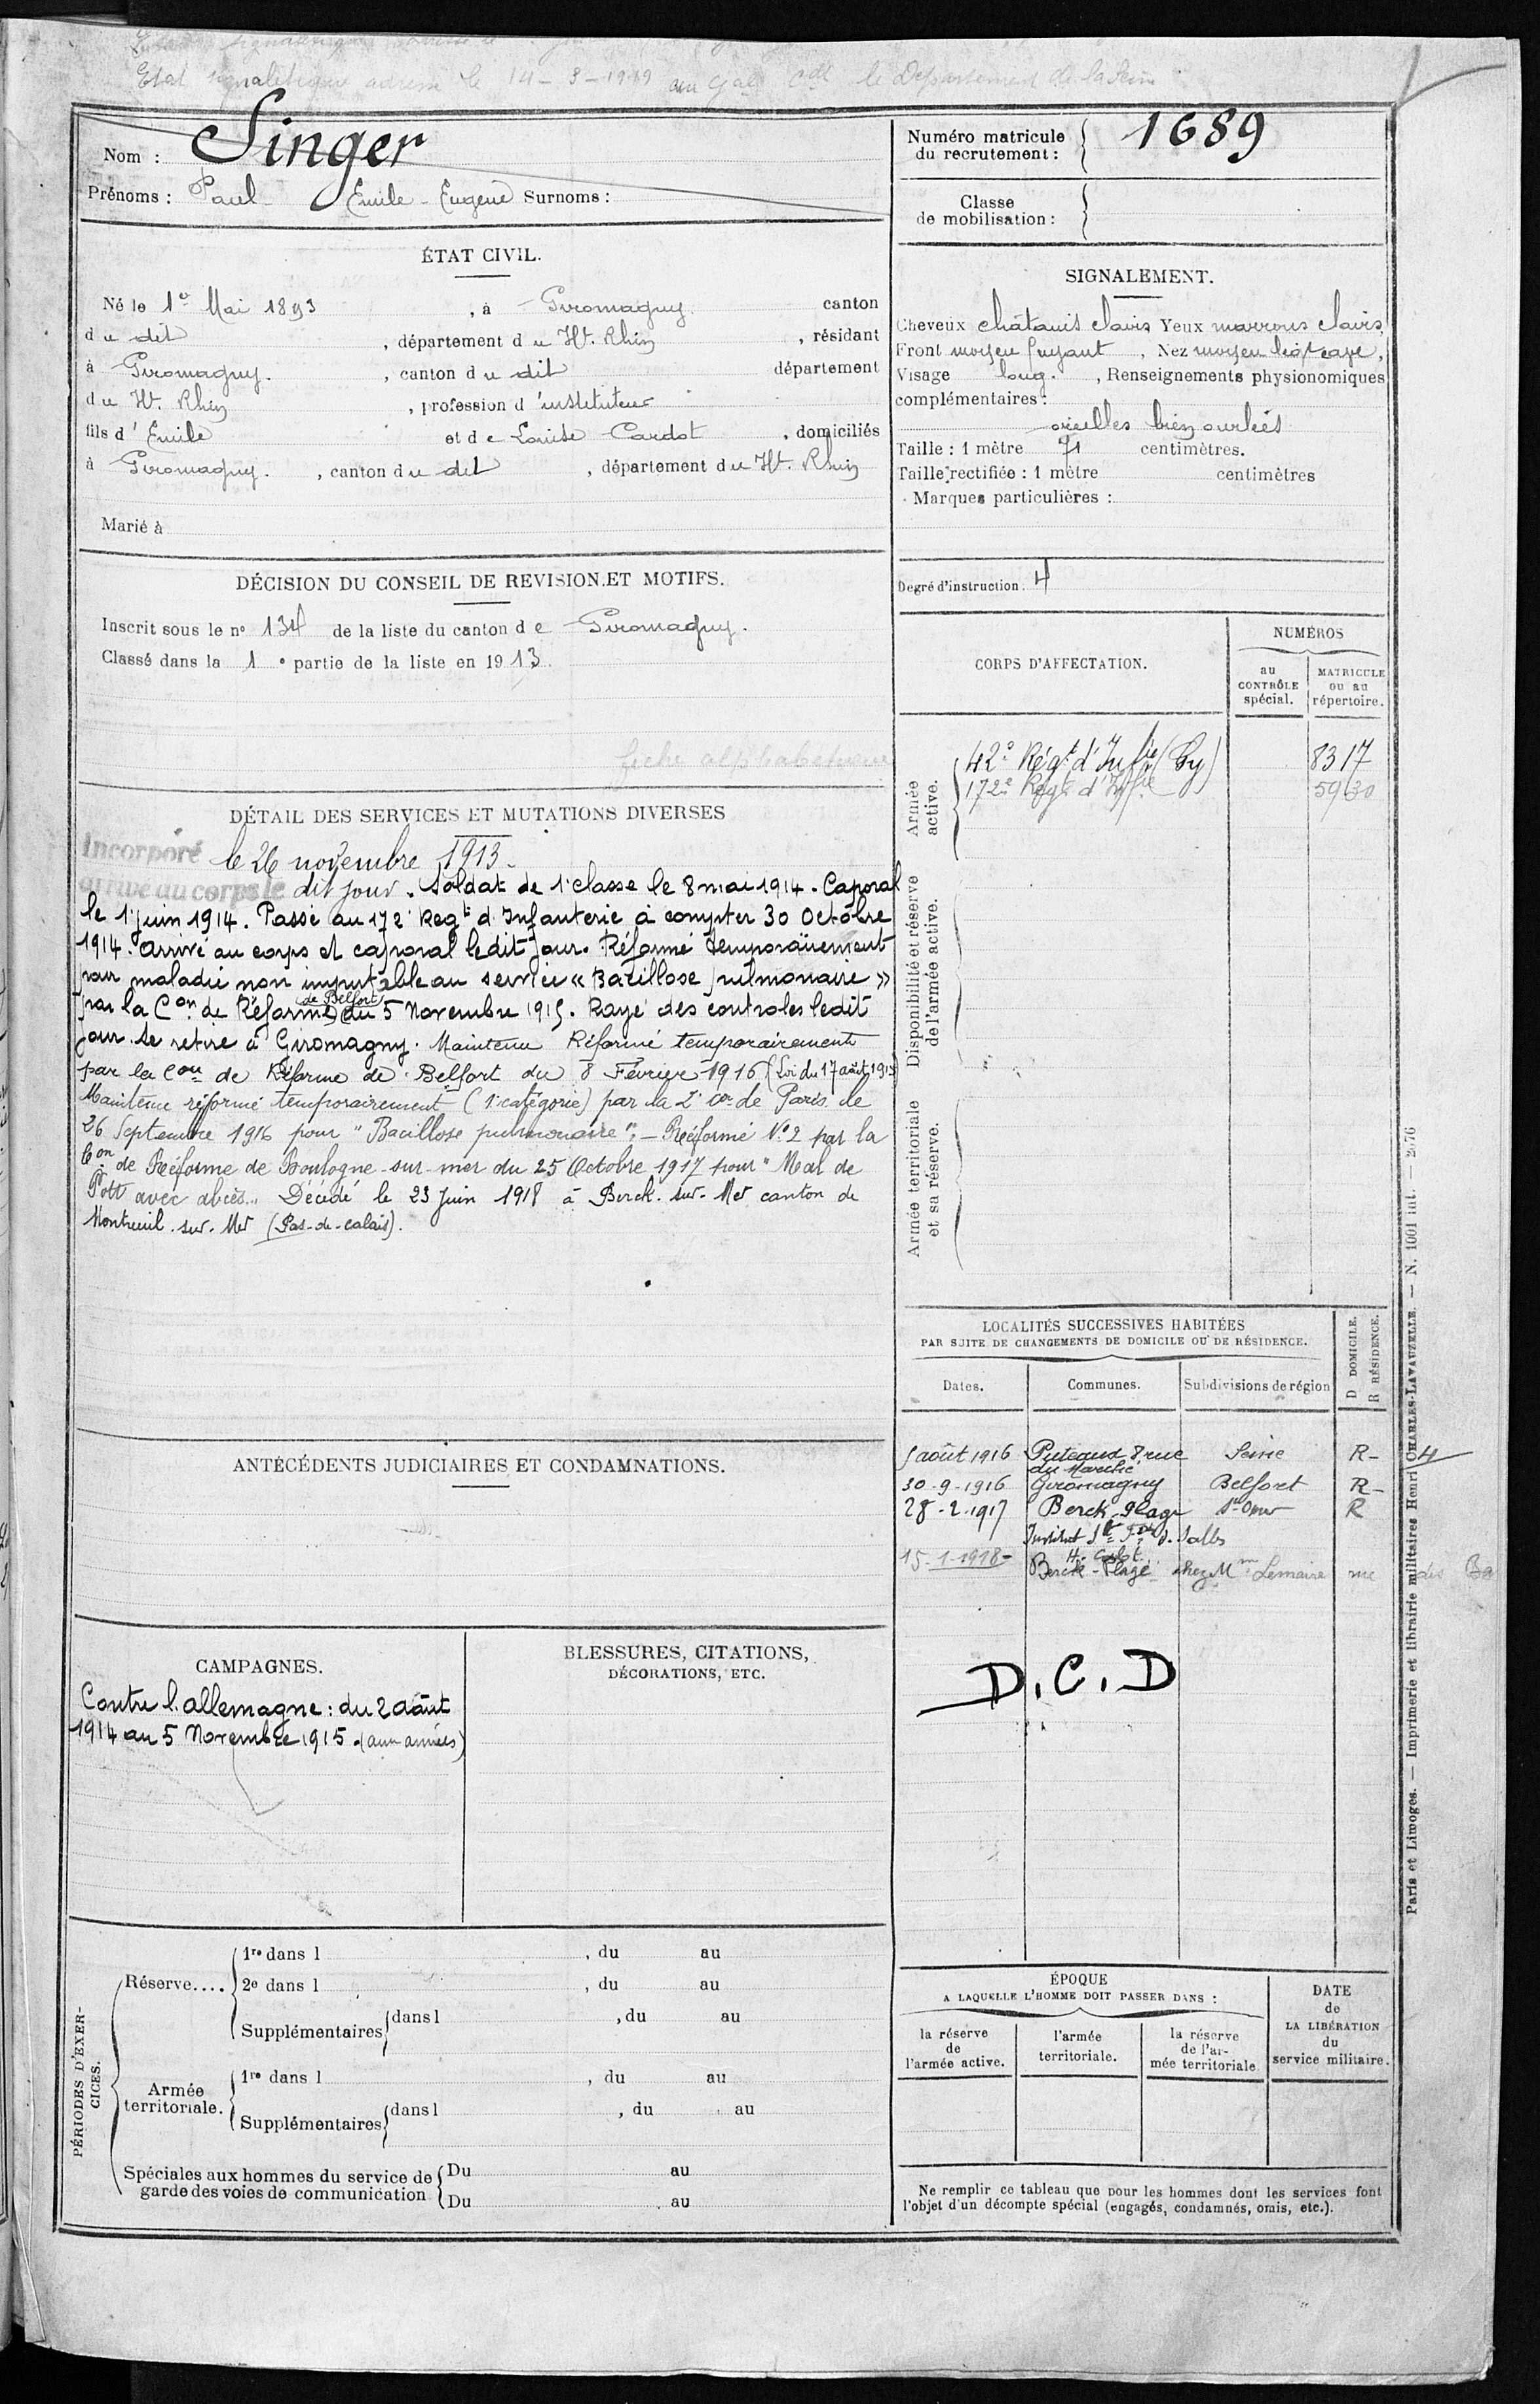 Etat signalétique adressé le 14-3-1919 au Gal Cdt le Département de la Seine
Nom : Singer
Prénoms : Paul - Emile - Eugène Surnoms :
Numéro matricule du recrutement : 1689
Classe de mobilisation :
ÉTAT CIVIL.
Né le 1er Mai 1893, à Giromagny canton
du dit, département du Ht. Rhin, résidant
à Giromagny., canton du dit département
du Ht. Rhin, profession d'instituteur
fils d'Emile et de Louise Cardot, domiciliés
à Giromagny., canton du dit, département du Ht. Rhin
Marié à
SIGNALEMENT.
Cheveux châtains clairs Yeux marrons clairs,
Front moyen fuyant, Nez moyen,
Visage long., Renseignements physionomiques
complémentaires :
oreilles bien ourlées
Taille : 1 mètre 71 centimètres.
Taille rectifiée : 1 mètre centimètres
Marques particulières :
Degré d'instruction. 4
DÉCISION DU CONSEIL DE REVISION ET MOTIFS.
Inscrit sous le no 134 de la liste du canton de Giromagny.
Classé dans la 1e partie de la liste en 1913
fiche alphabétique
CORPS D'AFFECTATION.
NUMÉROS
au CONTRÔLE spécial.
MATRICULE ou au répertoire.
Armée active.
42e Régt d'Infie 8317
172e Régt d'Infie 5930
Disponibilité et réserve de l'armée active.
Armée territoriale et sa réserve.
DÉTAIL DES SERVICES ET MUTATIONS DIVERSES
Incorporé le 26 novembre 1913.
arrivé au corps le dit jour. Soldat de 1e classe le 8 mai 1914. Caporal
le 1 juin 1914. Passé au 172e Regt d'Infanterie à compter 30 Octobre
1914. Arrivé au corps et caporal ledit jour. Réformé temporairement
pour maladie non imputable au service « Bacillose pulmonaire »
par la Con de Réforme de Belfort du 5 Novembre 1915. Rayé des controles ledit
jour. Se retire à Giromagny. Maintenu Réformé temporairement
par la Con de Réforme de Belfort du 8 Février 1916 (Loi du 17 août 1915)
Maintenu réformé temporairement (1e catégorie) par la 2e Con de Paris le
26 Septembre 1916 pour "Bacillose pulmonaire". - Réformé No 2 par la
Con de Réforme de Boulogne-sur-mer du 25 Octobre 1917 pour "Mal de
Pott avec abcès". Décédé le 23 Juin 1918 à Berck-sur-Mer canton de
Montreuil-sur-Mer (Pas-de-Calais).
ANTÉCÉDENTS JUDICIAIRES ET CONDAMNATIONS.
LOCALITÉS SUCCESSIVES HABITÉES
PAR SUITE DE CHANGEMENTS DE DOMICILE OU DE RÉSIDENCE.
Dates. Communes. Subdivisions de région D DOMICILE. R RÉSIDENCE.
5 août 1916 Puteaux 8 rue Seine R- 4
du Marché
30-9-1916 Giromagny Belfort R-
28-2-1917 Berck-Plage St Omer R
Institut St
15-1-1918 - Berck-Plage chez Mme Lemaire rue des
D.C.D
CAMPAGNES.
Contre l'allemagne : du 2 août
1914 au 5 Novembre 1915. (aux armées)
BLESSURES, CITATIONS,
DÉCORATIONS, ETC.
PÉRIODES D'EXERCICES.
Réserve....
1re dans l , du au
2e dans l , du au
Supplémentaires dans l , du au
Armée territoriale.
1re dans l , du au
Supplémentaires dans l , du au
Spéciales aux hommes du service de garde des voies de communication
Du au
Du au
ÉPOQUE
A LAQUELLE L'HOMME DOIT PASSER DANS :
la réserve de l'armée active.
l'armée territoriale.
la réserve de l'armée territoriale
DATE de LA LIBÉRATION du service militaire.
Ne remplir ce tableau que pour les hommes dont les services font
l'objet d'un décompte spécial (engagés, condamnés, omis, etc.).
Paris et Limoges. — Imprimerie et librairie militaires Henri CHARLES-LAVAUZELLE. — N. 1001 int. — 2076